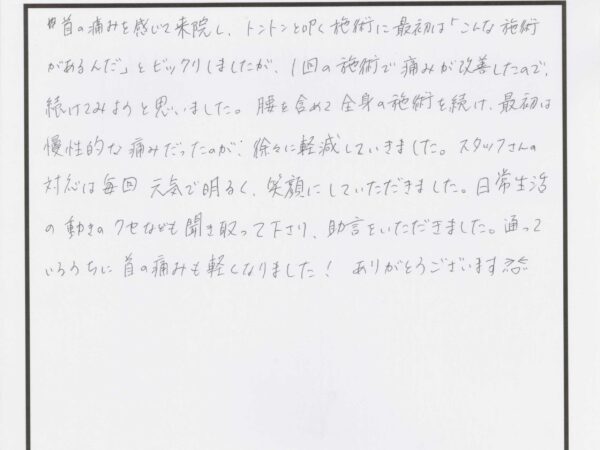 首の痛みを感じて来院し、トントンと叩く施術に最初は「こんな施術
があるんだ」とビックリしましたが、1回の施術で痛みが改善したので、
続けてみようと思いました。腰を含めて全身の施術を続け、最初は
慢性的な痛みだったのが、徐々に軽減していきました。スタッフさんの
対応は毎回元気で明るく、笑顔にしていただきました。日常生活
の動きのクセなども聞き取って下さり、助言をいただきました。通って
いるうちに首の痛みも軽くなりました！ ありがとうございます